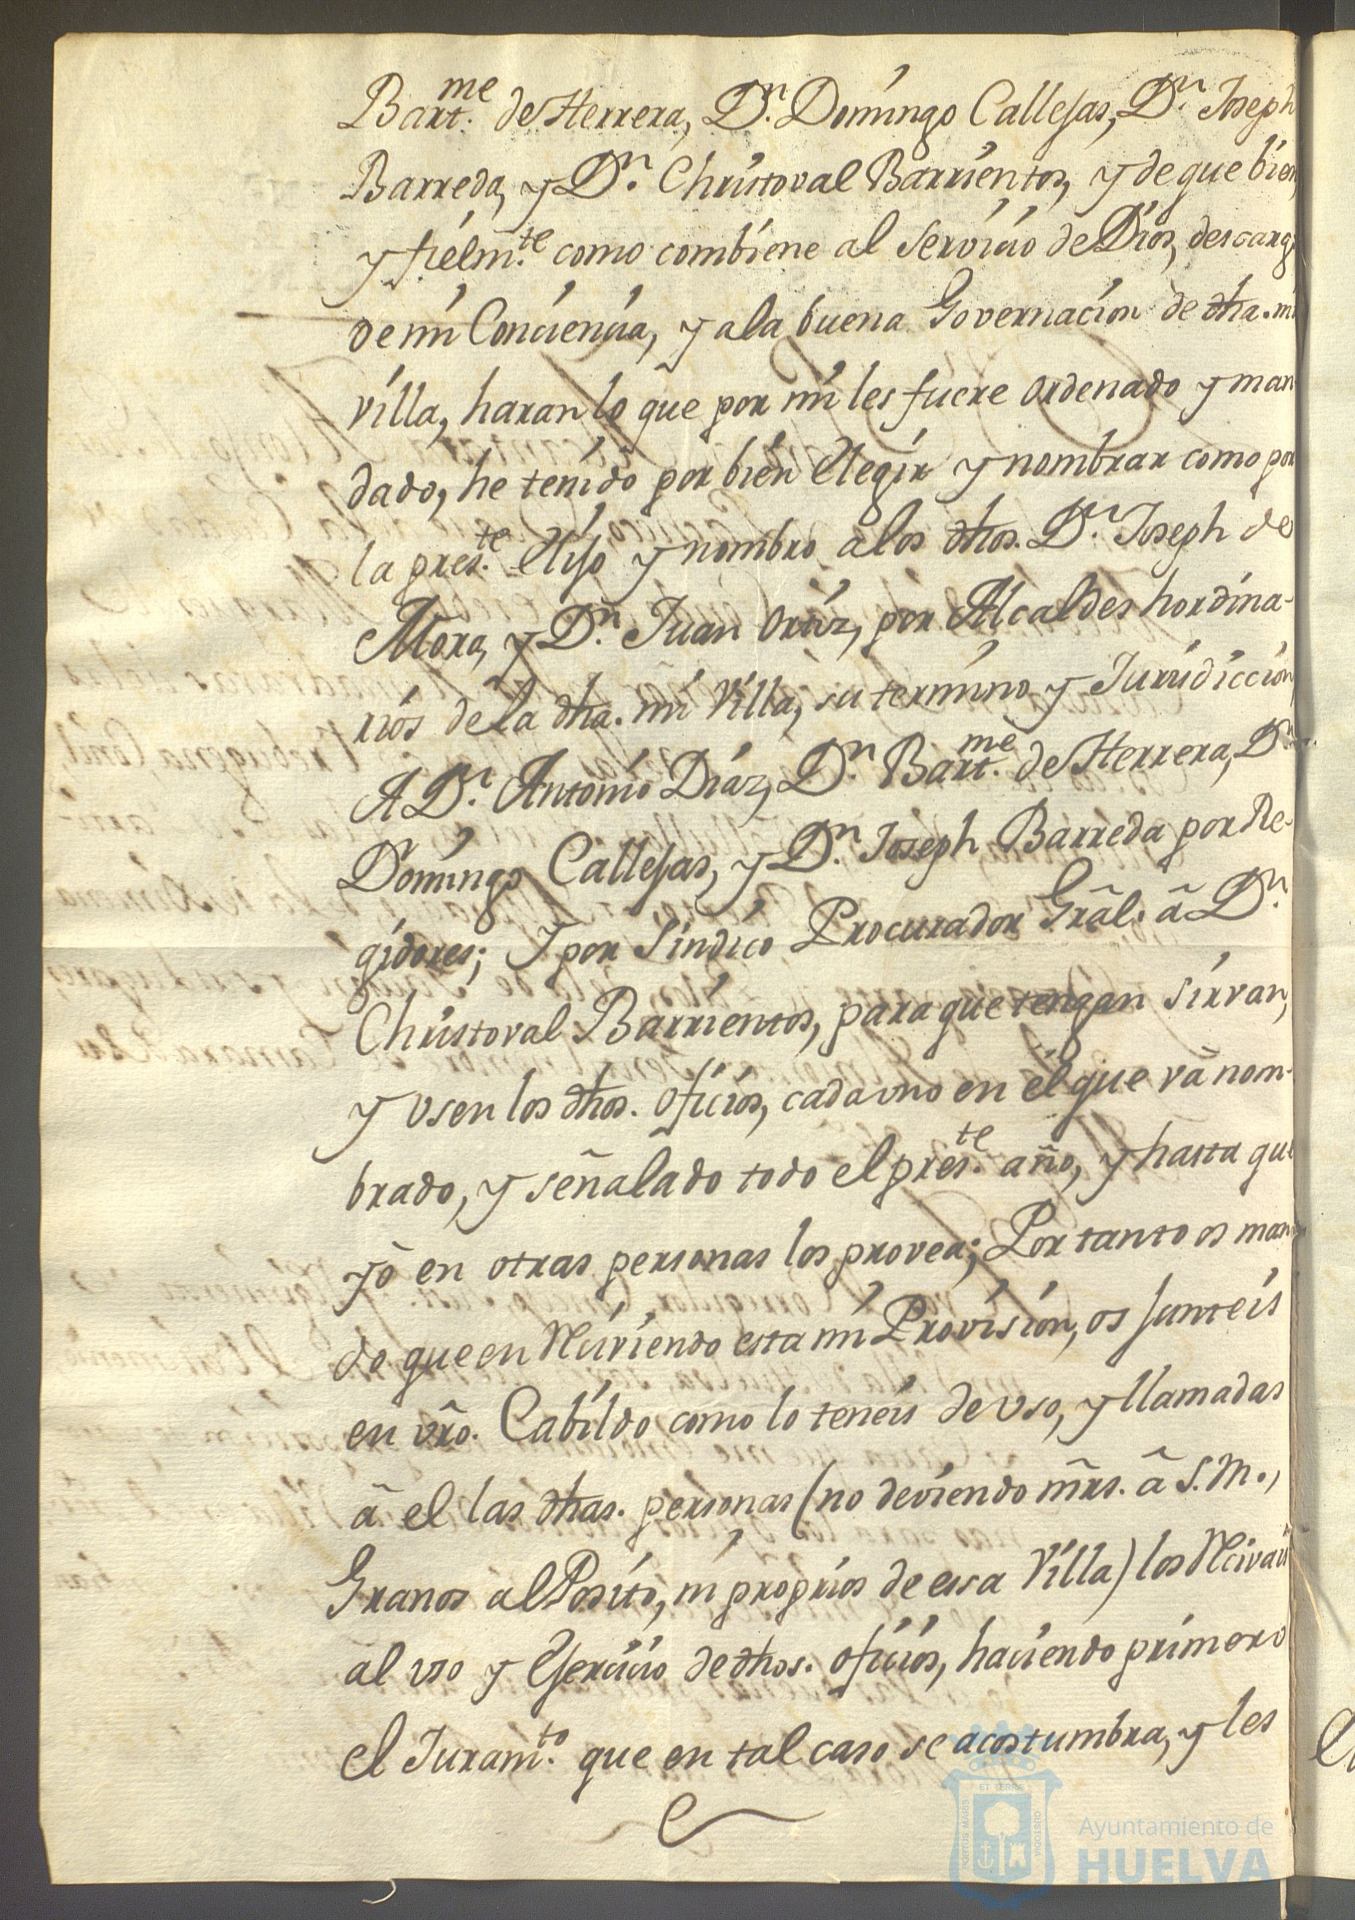 Bart.me de Herrera, Dn. Domingo Callejas, Dn. Joseph
Barreda, y Dn. Christoval Barrientos, y de que bien,
y fielm.te como combiene al servicio de Dios, descargo
de mi Conciencia, y a la buena Governacion de dha. mi
villa, haran lo que por mi les fuere ordenado y man
dado, he tenido por bien elegir y nombrar como por
la pres.te elijo y nombro a los dhos. Dn. Joseph de
Mora, y Dn. Juan Ortiz, por Alcaldes hordina-
rios de la dha. mi Villa, su termino y Jurisdiccion,
A Dn. Antonio Diaz, Dn. Bart.me de Herrera, Dn.
Domingo Callejas, y Dn. Joseph Barreda por Re-
gidores; Y por Sindico Procurador Grãl. â Dn.
Christoval Barrientos, para que tengan sirvan,
y vsen los dhos. oficios, cada vno en el que vâ nom-
brado, y señalado todo el pres.te año, y hasta que
yô en otras personas los provea; Por tanto os man
do que en Reciviendo esta mi Provision, os junteis
en vrõ. Cabildo como lo teneis de vso, y llamadas
â el las dhas. personas (no deviendo mrs. â S.M.,
Granos al Posito, ni proprios de essa Villa) los Recivais
al vso y Exercicio de dhos. oficios, haciendo primero
el Juram.to que en tal caso se acostumbra, y les
Ayuntamiento de
HUELVA